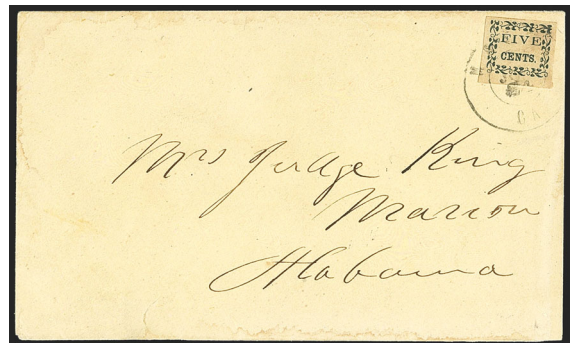 FIVE
CENTS.
Mrs Judge King
Marion
Alabama